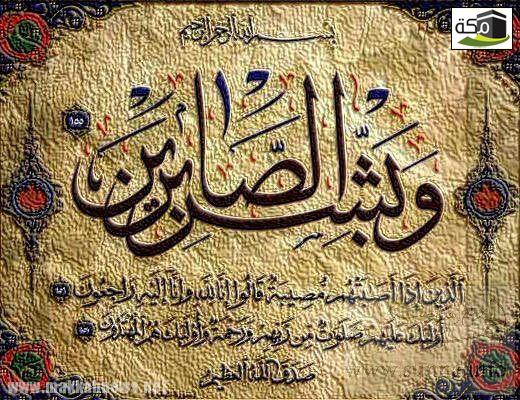 مكة
بسم الله الرحمن الرحيم
وَبَشِّرِ الصَّابِرِينَ ١٥٥
الَّذِينَ إِذَا أَصَابَتْهُم مُّصِيبَةٌ قَالُوا إِنَّا لِلَّهِ وَإِنَّا إِلَيْهِ رَاجِعُونَ ١٥٦
أُولَٰئِكَ عَلَيْهِمْ صَلَوَاتٌ مِّن رَّبِّهِمْ وَرَحْمَةٌ وَأُولَٰئِكَ هُمُ الْمُهْتَدُونَ ١٥٧
صدق الله العظيم
www.makkahnews.net